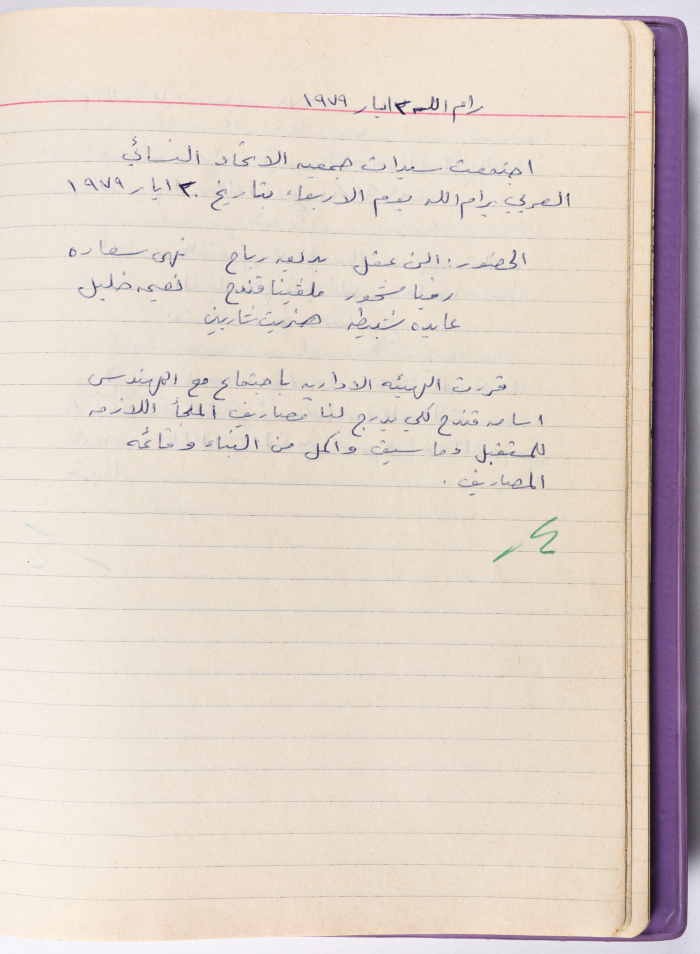 رام الله ٣٠ ايار ١٩٧٩
اجتمعت سيدات جمعيه الاتحاد النسائي
العربي برام الله يوم الاربعاء بتاريخ ٣٠ ايار ١٩٧٩
الحضور: الن عقل بديعه رباح نهى سعاده
رضيا مشحور ملفينا قندح نعيمه خليل
عايده شبيطه هنريت شاربين
قررت الهيئه الاداريه باجتماع مع المهندس
اسامه قندح لكي يدرج لنا مصاريف الملجأ اللازمه
للمستقبل وما سبق واكمل من البناء وقائمه
المصاريف .